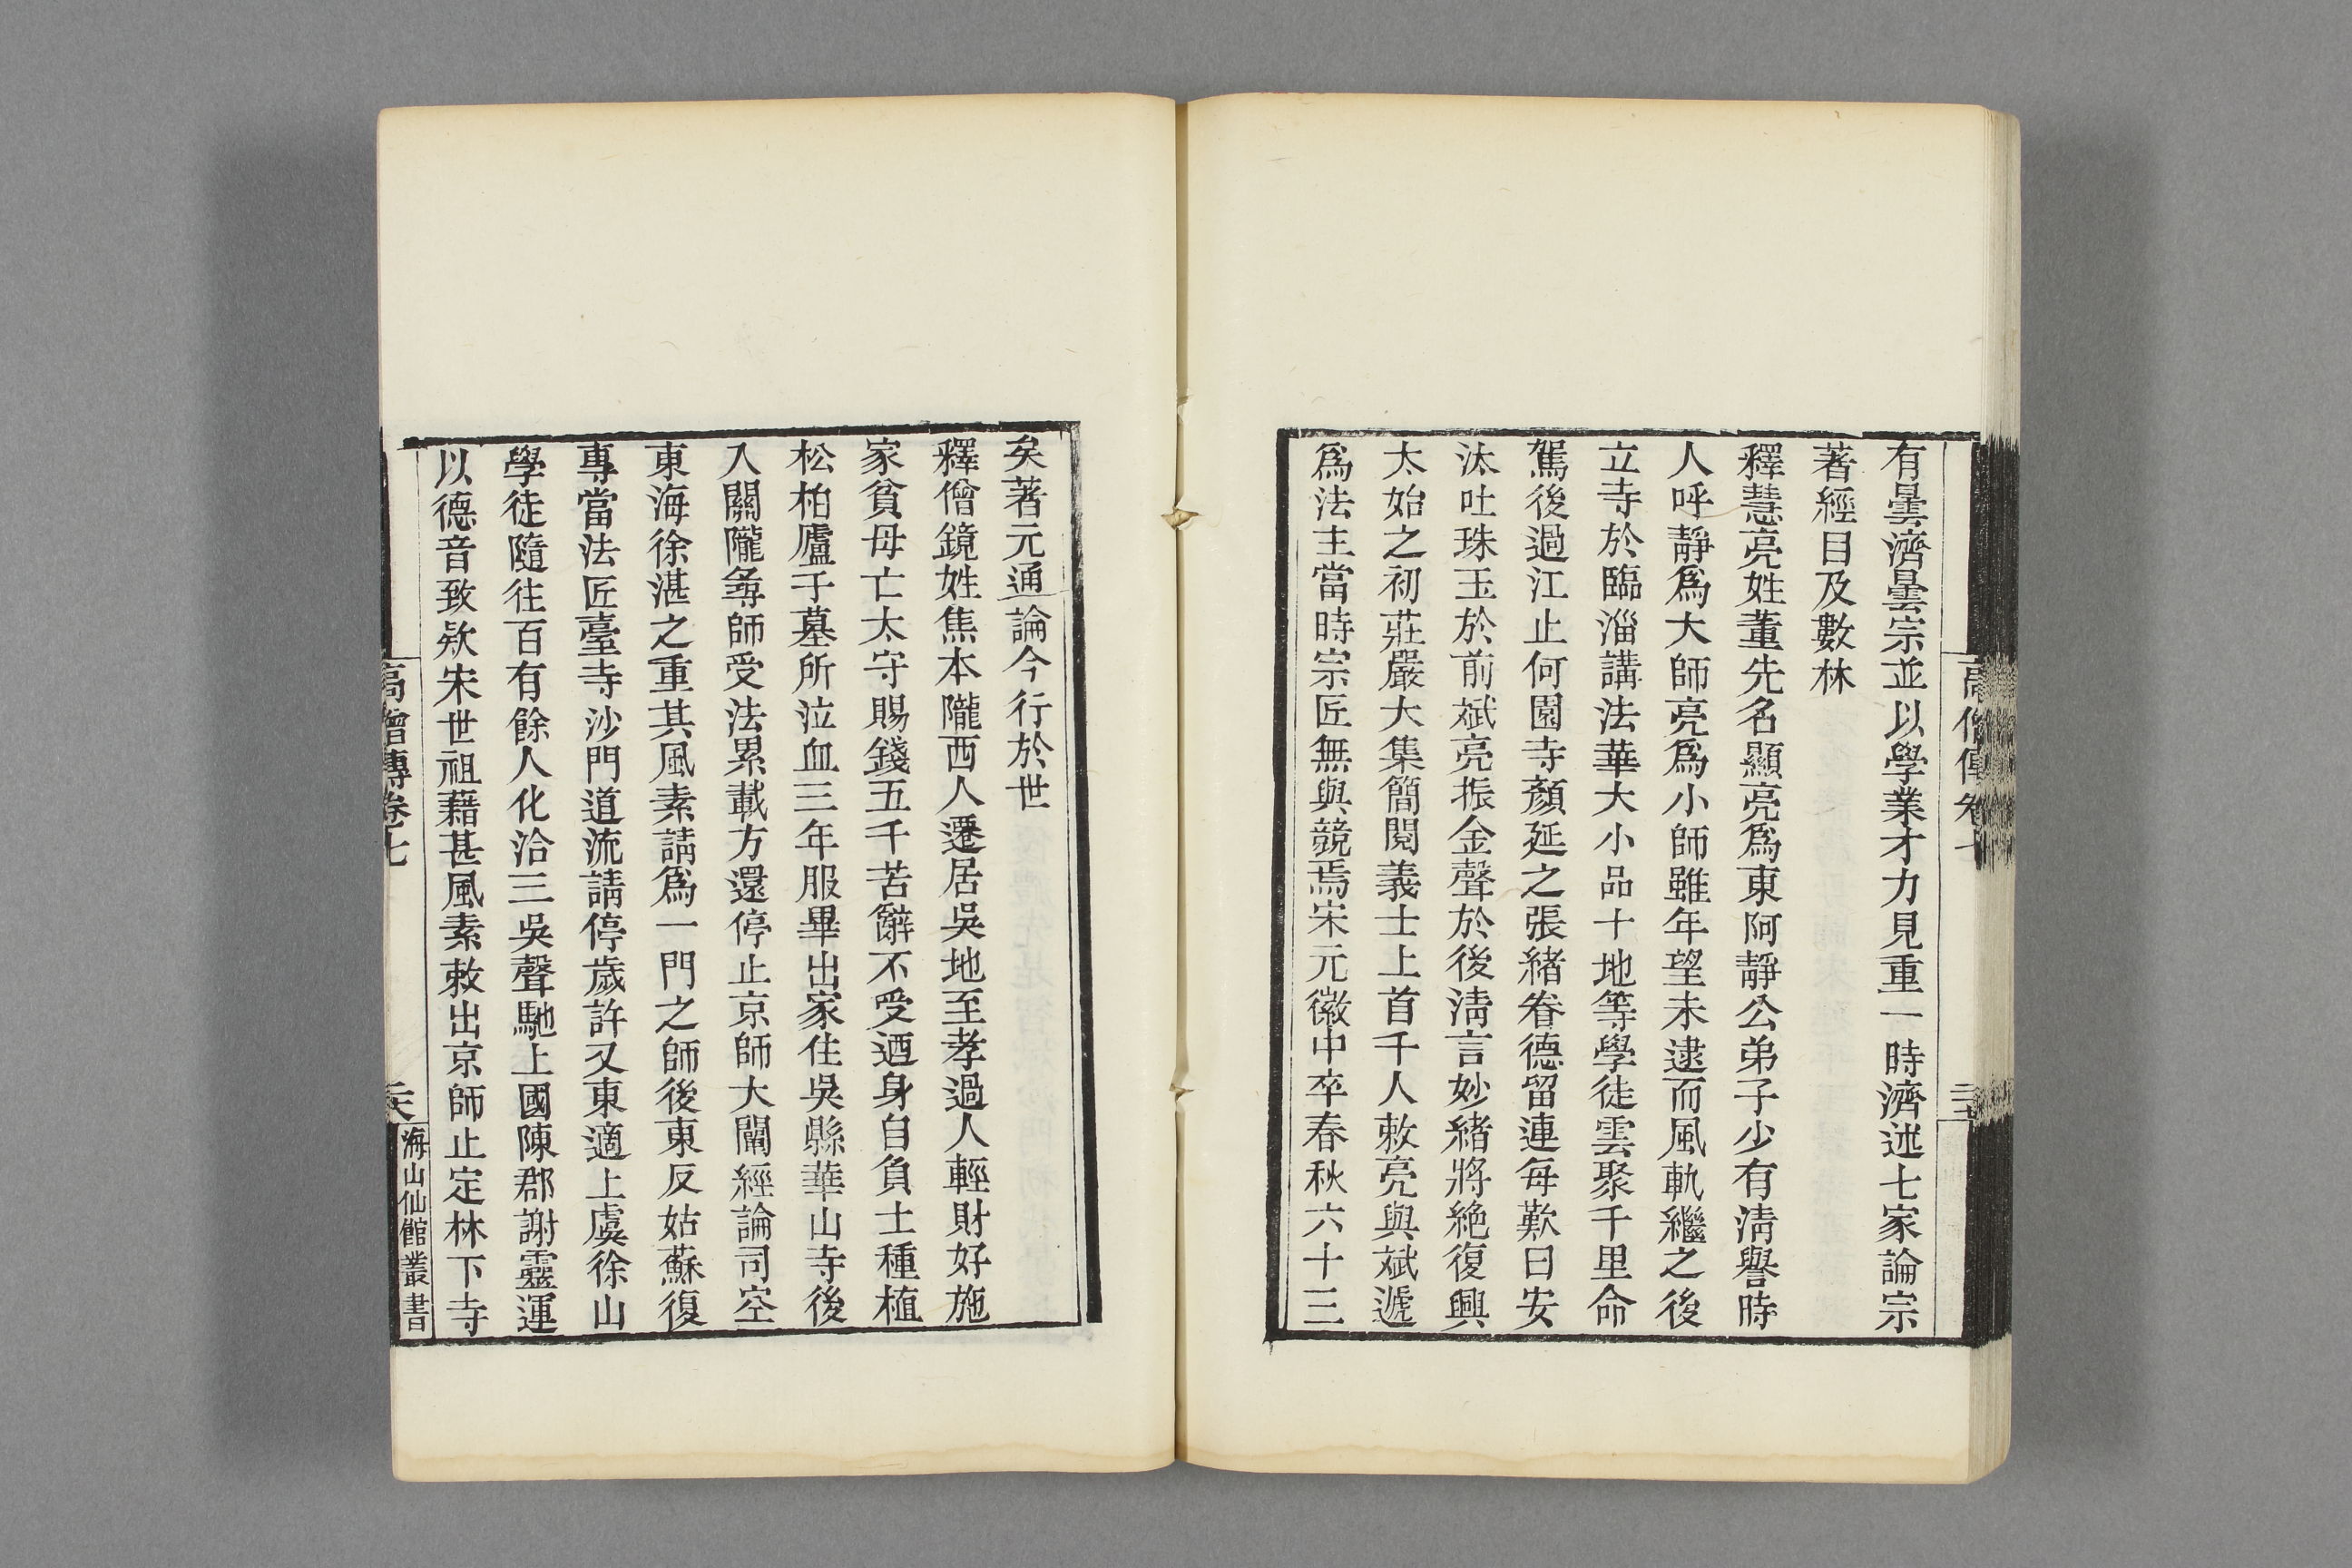 有曇濟曇宗並以學業才力見重一時濟述七家論宗
著經目及數林
釋慧亮姓董先名顯亮爲東阿靜公弟子少有淸譽時
人呼靜爲大師亮爲小師雖年望未逮而風軌繼之後
立寺於臨淄講法華大小品十地等學徒雲聚千里命
駕後過江止何園寺顏延之張緒眷德留連每歎曰安
汰吐珠玉於前斌亮振金聲於後淸言妙緒將絶復興
太始之初莊嚴大集簡閱義士上首千人敕亮與斌遞
爲法主當時宗匠無與競焉宋元徽中卒春秋六十三
矣著元通論今行於世
釋僧鏡姓焦本隴西人遷居吳地至孝過人輕財好施
家貧母亡太守賜錢五千苦辭不受迺身自負土種植
松柏廬于墓所泣血三年服畢出家住吳縣華山寺後
入關隴尋師受法累載方還停止京師大闡經論司空
東海徐湛之重其風素請爲一門之師後東反姑蘇復
專當法匠臺寺沙門道流請停歲許又東適上虞徐山
學徒隨往百有餘人化洽三吳聲馳上國陳郡謝靈運
以德音致欵宋世祖藉甚風素敕出京師止定林下寺
高僧傳卷七
海山仙館叢書